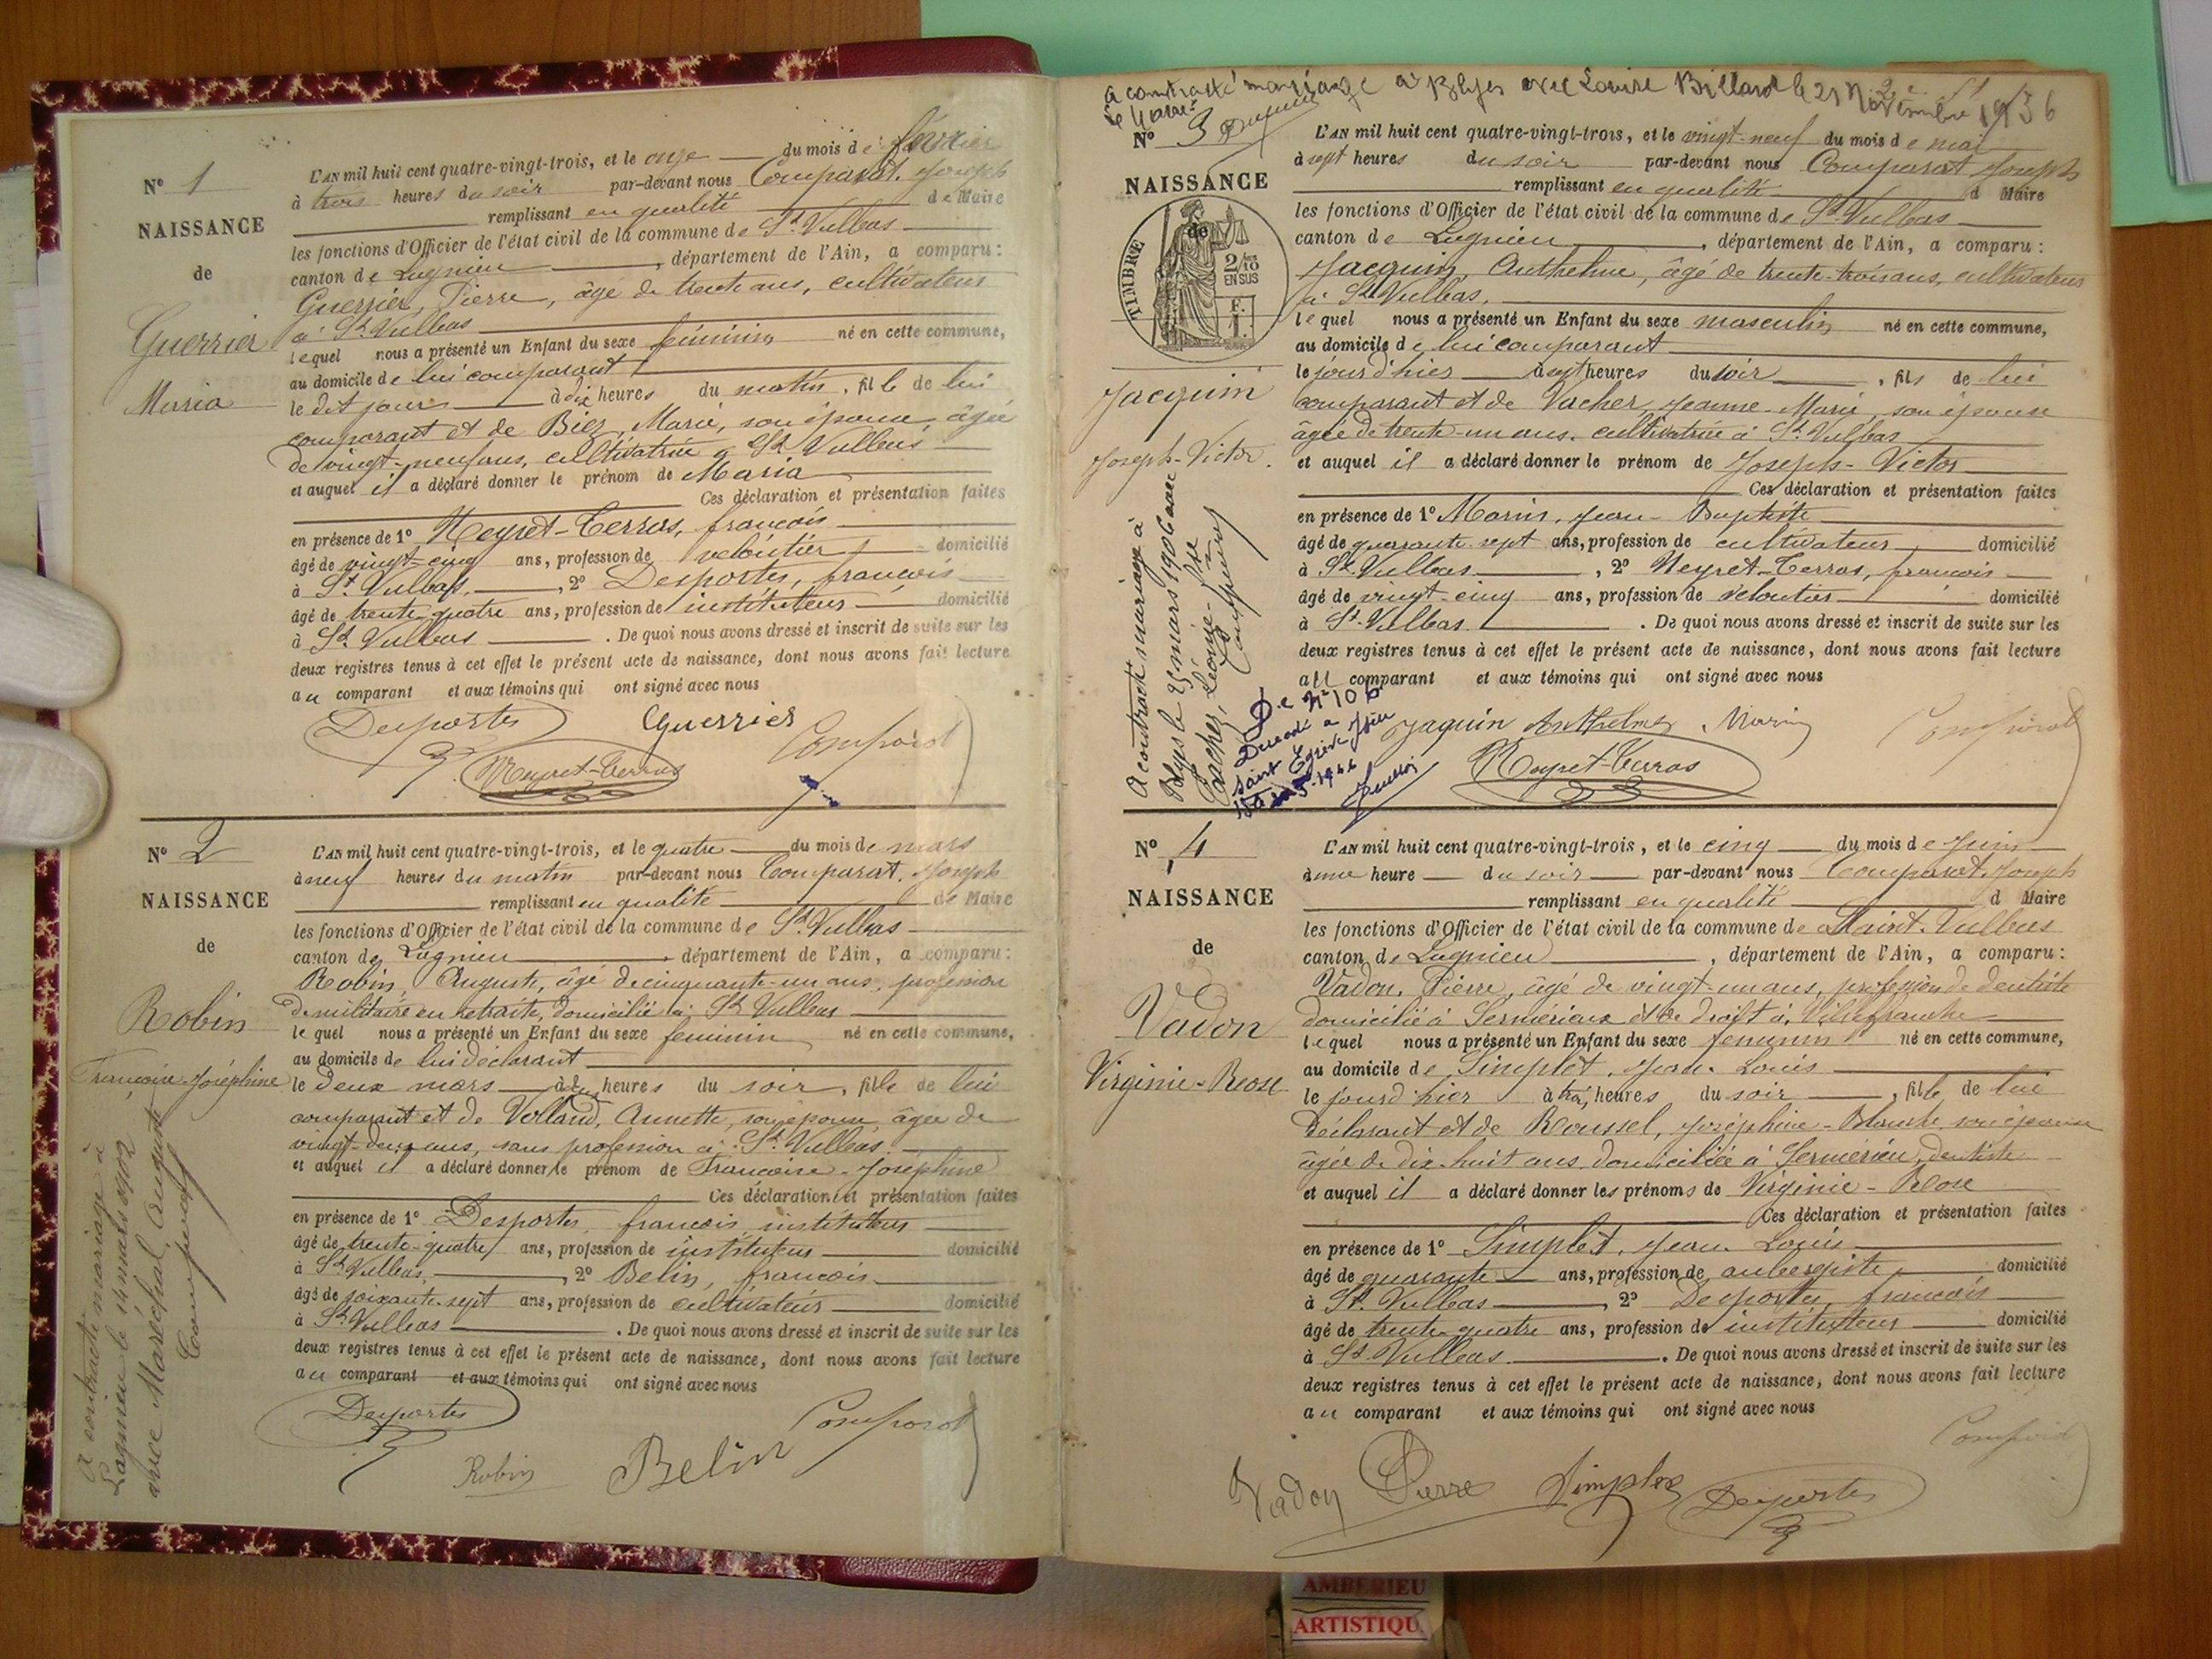 N° 1
NAISSANCE
de
Guerrier
Maria
L'AN mil huit cent quatre-vingt-trois, et le onze du mois de février
à trois heures du soir par-devant nous Comparat, Joseph
remplissant en qualité de Maire
les fonctions d'Officier de l'état civil de la commune de St Vulbas
canton de Lagnieu, département de l'Ain, a comparu:
Guerrier, Pierre, âgé de trente ans, cultivateur
à St Vulbas
lequel nous a présenté un Enfant du sexe féminin né en cette commune,
au domicile de lui comparant
le dit jour à dix heures du matin, fille de lui
comparant et de Biez, Marie, son épouse, âgée
de vingt-neuf ans, cultivatrice à St Vulbas
et auquel il a déclaré donner le prénom de Maria
Ces déclaration et présentation faites
en présence de 1° Neyret-Terras, françois
âgé de vingt-cinq ans, profession de veloutier domicilié
à St Vulbas, 2° Desportes, françois
âgé de trente-quatre ans, profession de instituteur domicilié
à St Vulbas. De quoi nous avons dressé et inscrit de suite sur les
deux registres tenus à cet effet le présent acte de naissance, dont nous avons fait lecture
au comparant et aux témoins qui ont signé avec nous
Desportes Guerrier Comparat
Neyret-Terras
N° 2
NAISSANCE
de
Robin
Françoise-Joséphine
A contracté mariage à
Lagnieu le 14 mars 1902
avec Maréchal, Auguste
Comparat
L'AN mil huit cent quatre-vingt-trois, et le quatre du mois de mars
à neuf heures du matin par-devant nous Comparat, Joseph
remplissant en qualité de Maire
les fonctions d'Officier de l'état civil de la commune de St Vulbas
canton de Lagnieu, département de l'Ain, a comparu:
Robin, Auguste, âgé de cinquante-un ans, profession
de militaire en retraite, domicilié à St Vulbas
le quel nous a présenté un Enfant du sexe féminin né en cette commune,
au domicile de lui déclarant
le deux mars à heures du soir, fille de lui
comparant et de Volland, Annette, son épouse, âgée de
vingt-deux ans, sans profession à St Vulbas
et auquel il a déclaré donner le prénom de Françoise-Joséphine
Ces déclaration et présentation faites
en présence de 1° Desportes, françois, instituteur
âgé de trente-quatre ans, profession de instituteur domicilié
à St Vulbas, 2° Belin, françois
âgé de soixante-sept ans, profession de cultivateur domicilié
à St Vulbas. De quoi nous avons dressé et inscrit de suite sur les
deux registres tenus à cet effet le présent acte de naissance, dont nous avons fait lecture
au comparant et aux témoins qui ont signé avec nous
Desportes Comparat
Robin Belin
a contracté mariage à Blyes avec Louise Billard le 21 Novembre 1936
N° 3
NAISSANCE
de
TIMBRE
2/10 EN SUS
Jacquin
Joseph-Victor.
A contracté mariage à
Blyes le 25 mars 1906 avec
Léonie
Comparat
N° 10
Décédé à
Saint Egrève Isère
L'AN mil huit cent quatre-vingt-trois, et le vingt-neuf du mois de mai
à sept heures du soir par-devant nous Comparat Joseph
remplissant en qualité d Maire
les fonctions d'Officier de l'état civil de la commune de St Vulbas
canton de Lagnieu, département de l'Ain, a comparu:
Jacquin, Anthelme, âgé de trente-trois ans, cultivateur
à St Vulbas,
lequel nous a présenté un Enfant du sexe masculin né en cette commune,
au domicile de lui comparant
le jour d'hier à sept heures du soir, fils de lui
comparant et de Vacher, Jeanne-Marie, son épouse
âgée de trente-un ans, cultivatrice à St Vulbas
et auquel il a déclaré donner le prénom de Joseph-Victor
Ces déclaration et présentation faites
en présence de 1° Marin, Jean-Baptiste
âgé de quarante-sept ans, profession de cultivateur domicilié
à St Vulbas, 2° Neyret-Terras, françois
âgé de vingt-cinq ans, profession de veloutier domicilié
à St Vulbas. De quoi nous avons dressé et inscrit de suite sur les
deux registres tenus à cet effet le présent acte de naissance, dont nous avons fait lecture
au comparant et aux témoins qui ont signé avec nous
Jaquin Anthelme Marin Comparat
Neyret-Terras
N° 4
NAISSANCE
de
Vadon
Virginie-Rose
L'AN mil huit cent quatre-vingt-trois, et le cinq du mois de Juin
à une heure du soir par-devant nous Comparat, Joseph
remplissant en qualité d Maire
les fonctions d'Officier de l'état civil de la commune de Saint-Vulbas
canton de Lagnieu, département de l'Ain, a comparu:
Vadon, Pierre, âgé de vingt-un ans, profession de dentiste
domicilié à Sermérieu et de droit à Villefranche
lequel nous a présenté un Enfant du sexe féminin né en cette commune,
au domicile de Simplet, Jean-Louis
le jour d'hier à trois heures du soir, fille de lui
déclarant et de Roussel, Joséphine-Blanche, son épouse
âgée de dix-huit ans, domiciliée à Sermérieu, dentiste
et auquel il a déclaré donner les prénoms de Virginie-Rose
Ces déclaration et présentation faites
en présence de 1° Simplet, Jean-Louis
âgé de quarante ans, profession de aubergiste domicilié
à St Vulbas, 2° Desportes, françois
âgé de trente-quatre ans, profession de instituteur domicilié
à St Vulbas. De quoi nous avons dressé et inscrit de suite sur les
deux registres tenus à cet effet le présent acte de naissance, dont nous avons fait lecture
au comparant et aux témoins qui ont signé avec nous
Comparat
Vadon Pierre Simplet Desportes
AMBERIEU
ARTISTIQU